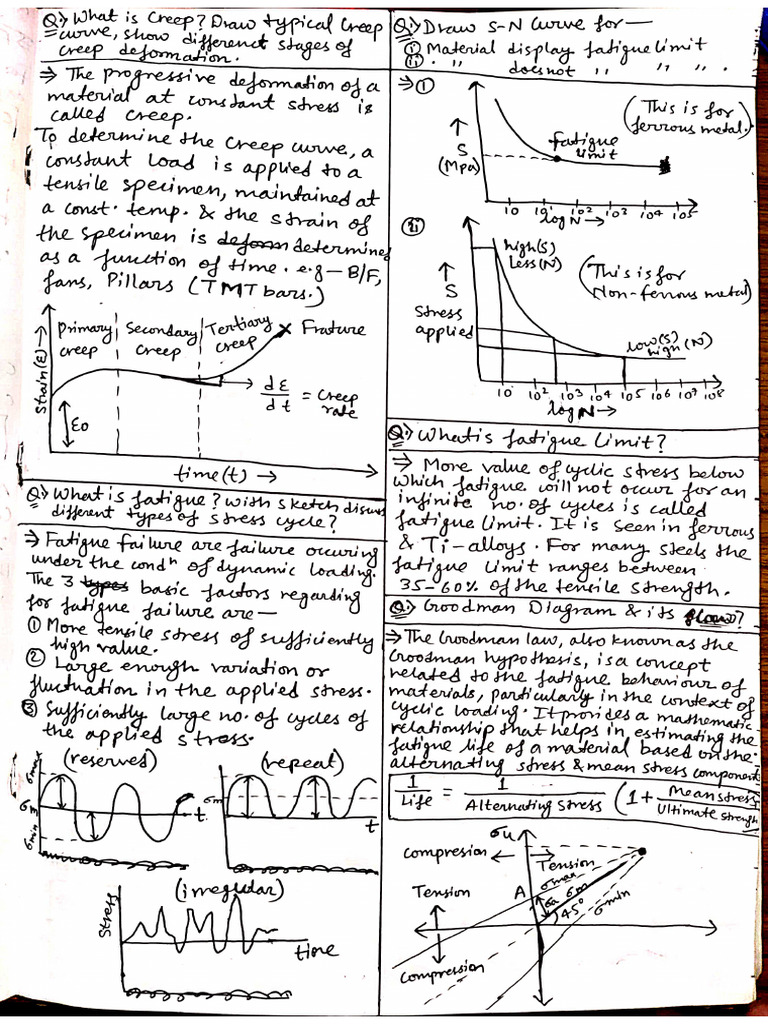 Q.) What is Creep? Draw typical Creep
curve, show different stages of
creep deformation.
⇒ The progressive deformation of a
material at constant stress is
called creep.
To determine the creep curve, a
constant load is applied to a
tensile specimen, maintained at
a const. temp. & the strain of
the specimen is deform determined
as a function of time. e.g – B/F,
fans, Pillars (TMT bars.)
Primary creep
Secondary creep
Tertiary creep
Frature
Strain(ε) →
ε0
dε/dt = Creep rate
time(t) →
Q.) What is fatigue? with sketch discuss
different types of stress cycle?
⇒ Fatigue failure are failure occuring
under the condⁿ of dynamic loading.
The 3 types basic factors regarding
for fatigue failure are—
① More tensile stress of sufficiently
high value.
② Large enough variation or
fluctuation in the applied stress.
③ Sufficiently large no. of cycles of
the applied stress.
(reserved)
σmax
σm
σmin
t.
(repeat)
σm
t
(irregular)
Stress
time
Q.) Draw S-N Curve for—
① Material display fatigue limit
② " " does not " " " .
⇒ ①
↑
S
(Mpa)
fatigue
limit
(This is for
ferrous metal.)
10 10¹ 10² 10³ 10⁴ 10⁵
log N →
②
high(S)
Less(N)
↑
S
Stress
applied
(This is for
Non-ferrous metal)
low(S)
high(N)
10 10² 10³ 10⁴ 10⁵ 10⁶ 10⁷ 10⁸
log N →
Q.) What is fatigue Limit?
⇒ More value of cyclic stress below
which fatigue will not occur for an
infinite no. of cycles is called
fatigue limit. It is seen in ferrous
& Ti-alloys. For many steels the
fatigue limit ranges between
35-60% of the tensile strength.
Q.) Goodman Diagram & its
⇒ The Goodman law, also known as the
Goodman hypothesis, is a concept
related to the fatigue behaviour of
materials, particularly in the context of
cyclic loading. It provides a mathematic
relationship that helps in estimating the
fatigue life of a material based on the
alternating stress & mean stress component
1/Life = 1/Alternating stress (1 + Mean stress/Ultimate strength
σu
compresion
Tension
Tension
compression
A
σmax
σa
σm
45°
σmin